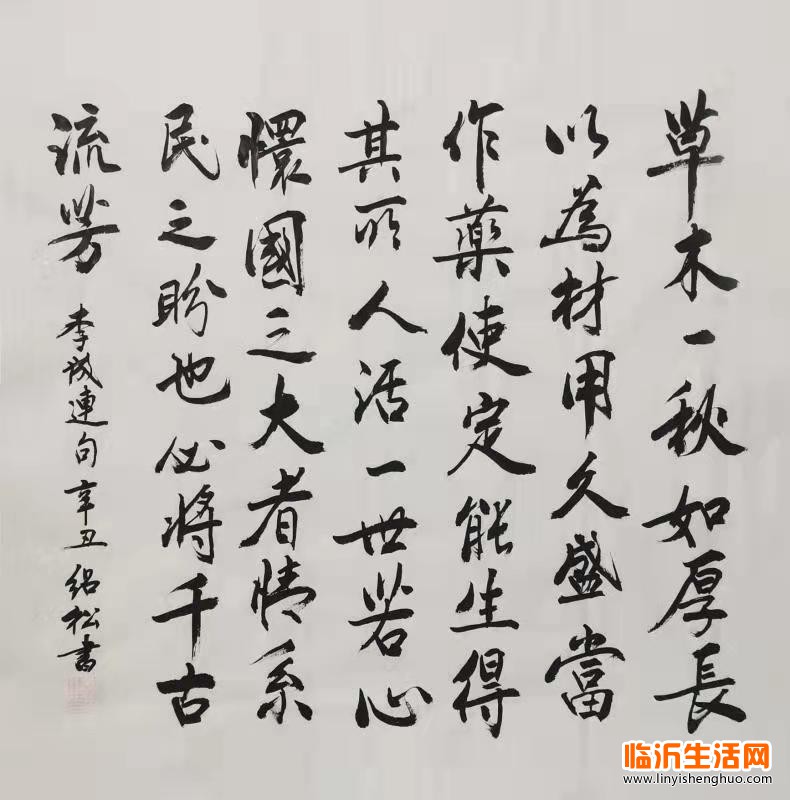 草木一秋如厚長
以為材用久盛當
作藥使定能生得
其所人活一世若心
懷國之大者情系
民之盼也必將千古
流芳
李成連句辛丑紹松書
临沂生活网
www.linyishenghuo.com